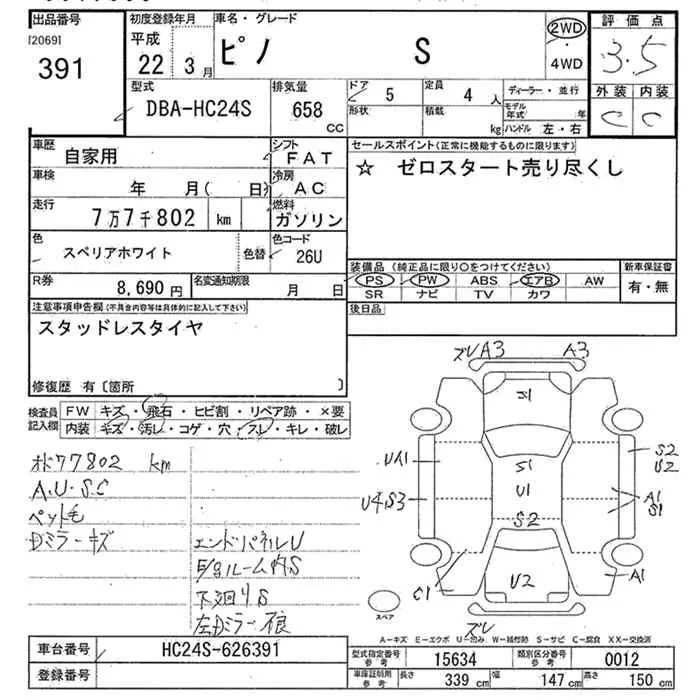 出品番号
[2069]
391
初度登録年月
平成
22 3月
車名・グレード
ピノ S
2WD
・
4WD
評価点
3.5
外装 内装
C C
型式
DBA-HC24S
排気量
658
CC
ドア
5
形状
定員
4 人
積載
kg
ディーラー・並行
モデル年式 年
ハンドル 左・右
車歴
自家用
シフト
FAT
車検
年 月( 日)
冷房
AC
走行
7万7千802 km
燃料
ガソリン
色
スペリアホワイト
色替
色コード
26U
R券
8,690円
名変通知期限
月 日
セールスポイント(正常に機能するものに限ります)
☆ ゼロスタート売り尽くし
装備品(純正品に限り○をつけてください)
PS PW ABS エアB AW
SR ナビ TV カワ
新車保証書
有・無
後日品
注意事項申告欄(不具合内容等は具体的に記入して下さい)
スタッドレスタイヤ
修復歴 有〔箇所 〕
検査員
記入欄
FW キズ・飛石・ヒビ割・リペア跡・×要
内装 キズ・汚レ・コゲ・穴・スレ・キレ・破レ
77802 km
A.U.S.C
ペット毛
Dミラーキズ
エンドパネルU
ルーム内S
下廻りS
左Dミラー
ズレ A3 A3
S1
UA1
S1
U1
S2
U2
U4S3
A1
S1
S2
C1
U2
A1
スペア
ズレ
A-キズ E-エクボ U-凹み W-補修跡 S-サビ C-腐食 XX-交換済
車台番号
HC24S-626391
登録番号
型式指定番号
参考
15634
類別区分番号
参考
0012
車庫証明用
参考
長さ
339 cm
幅
147 cm
高さ
150 cm